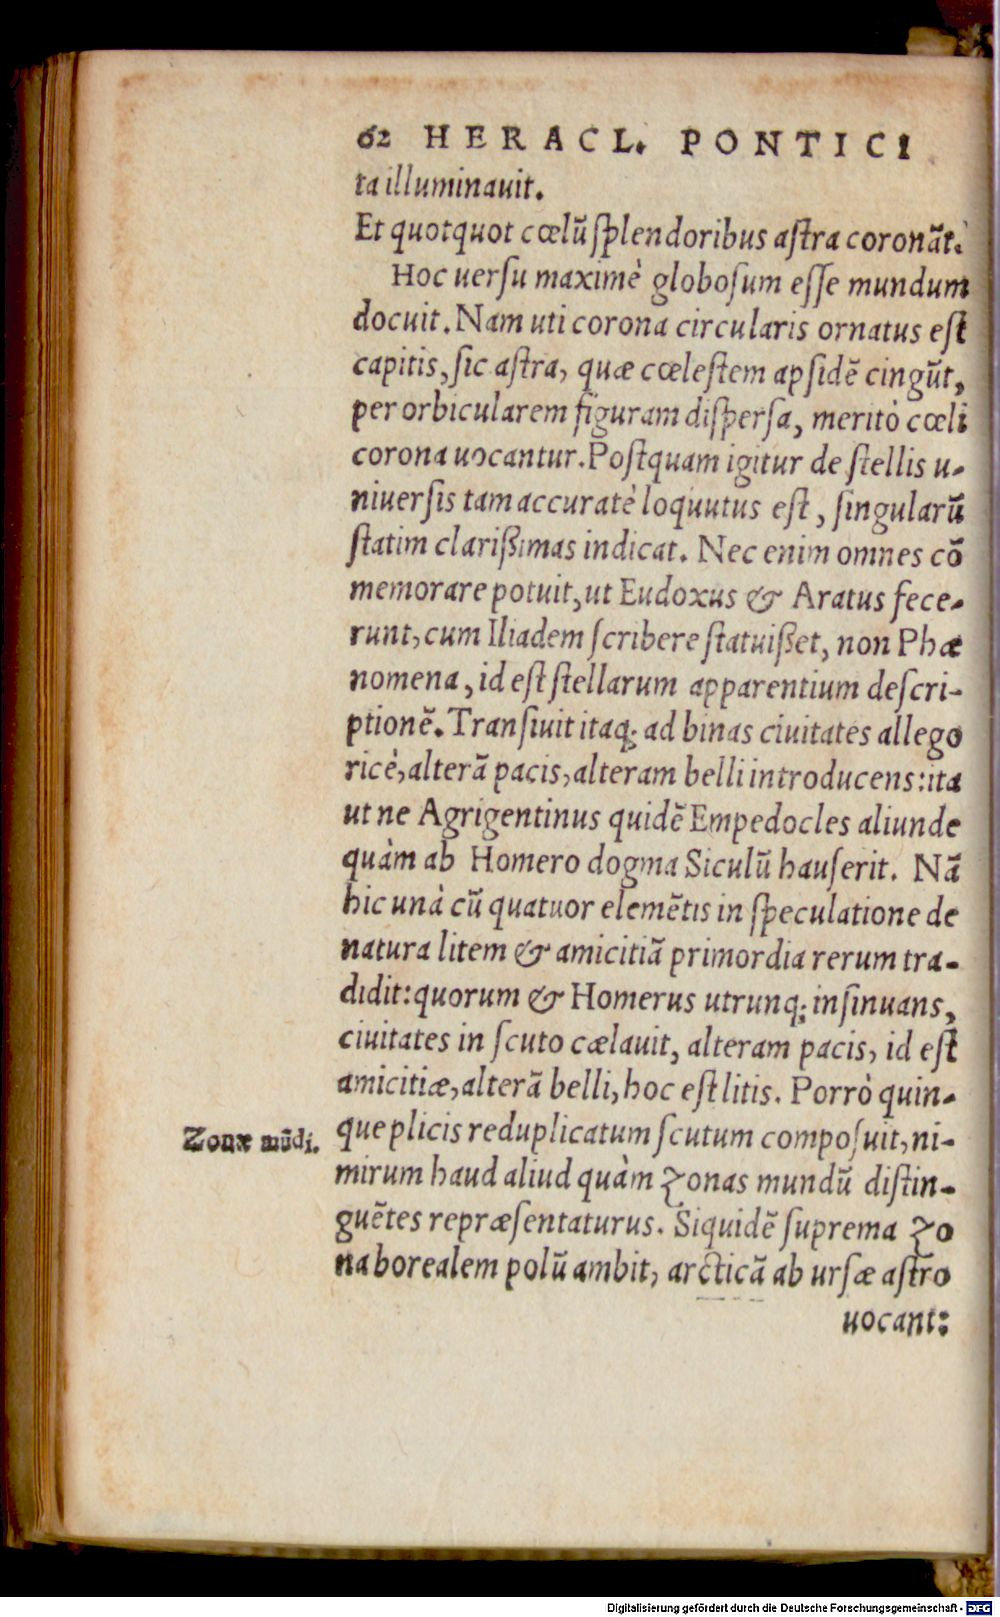 62 HERACL. PONTICI
ta illuminauit.
Et quotquot cœlũ ſplendoribus aſtra coronãt.
Hoc uerſu maximè globoſum eſſe mundum
docuit. Nam uti corona circularis ornatus eſt
capitis, ſic aſtra, quæ cœleſtem apſidẽ cingũt,
per orbicularem figuram diſperſa, meritò cœli
corona uocantur. Poſtquam igitur de ſtellis u-
niuerſis tam accuratè loquutus eſt, ſingularũ
ſtatim clariſsimas indicat. Nec enim omnes cõ
memorare potuit, ut Eudoxus & Aratus fece-
runt, cum Iliadem ſcribere ſtatuiſſet, non Phæ
nomena, id eſt ſtellarum apparentium deſcri-
ptionẽ. Tranſiuit itaq; ad binas ciuitates allego
ricè, alterã pacis, alteram belli introducens: ita
ut ne Agrigentinus quidẽ Empedocles aliunde
quàm ab Homero dogma Siculũ hauſerit. Nã
hic unà cũ quatuor elemẽtis in ſpeculatione de
natura litem & amicitiã primordia rerum tra-
didit: quorum & Homerus utrunq; inſinuans,
ciuitates in ſcuto cælauit, alteram pacis, id eſt
amicitiæ, alterã belli, hoc eſt litis. Porrò quin-
que plicis reduplicatum ſcutum compoſuit, ni-
Zonæ mũdi.
mirum haud aliud quàm zonas mundũ diſtin-
guẽtes repræſentaturus. Siquidẽ ſuprema zo
na borealem polũ ambit, arcticã ab urſæ aſtro
uocant:
Digitalisierung gefördert durch die Deutsche Forschungsgemeinschaft - DFG